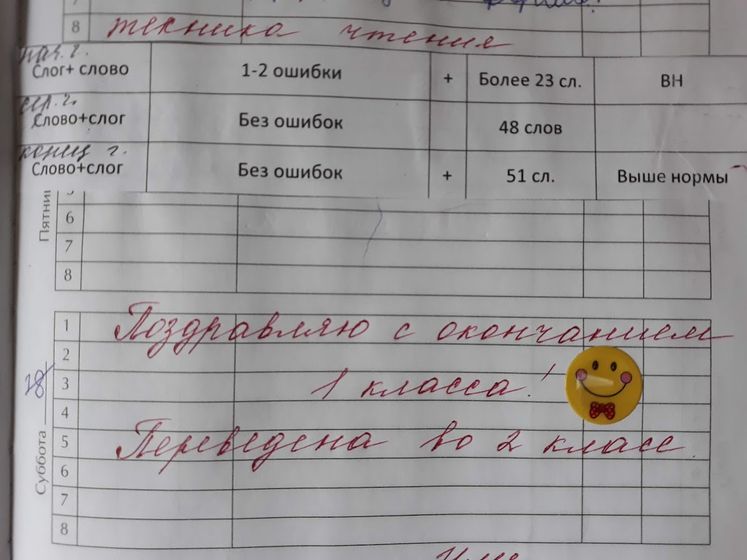 8 техника чтения
нач. г.
Слог+ слово 1-2 ошибки + Более 23 сл. ВН
сер. г.
Слово+слог Без ошибок 48 слов
конец г.
Слово+слог Без ошибок + 51 сл. Выше нормы
Пятни
6
7
8
Суббота 28
1 Поздравляю с окончанием
2
3 1 класса!
4
5 Переведена во 2 класс
6
7
8